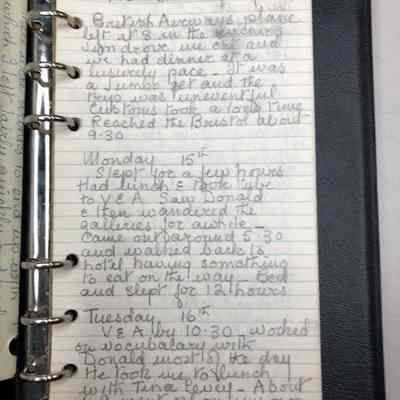 British Airways plane
left at 8 in the evening
Jem drove me out and
we had dinner at a
leisurely pace - It was
a Jumbo jet and the
trip was uneventful
Customs took a long time
Reached the Bristol about
9.30
Monday 15th
Slept for a few hours
Had lunch & took tube
to V & A Saw Donald
& then wandered the
galleries for awhile -
Came out around 5.30
and walked back to
hotel having something
to eat on the way - Bed
and slept for 12 hours
Tuesday 16th
V & A by 10.30 - worked
on vocabulary with
Donald most of the day
He took me to lunch
with Tina Levey - About